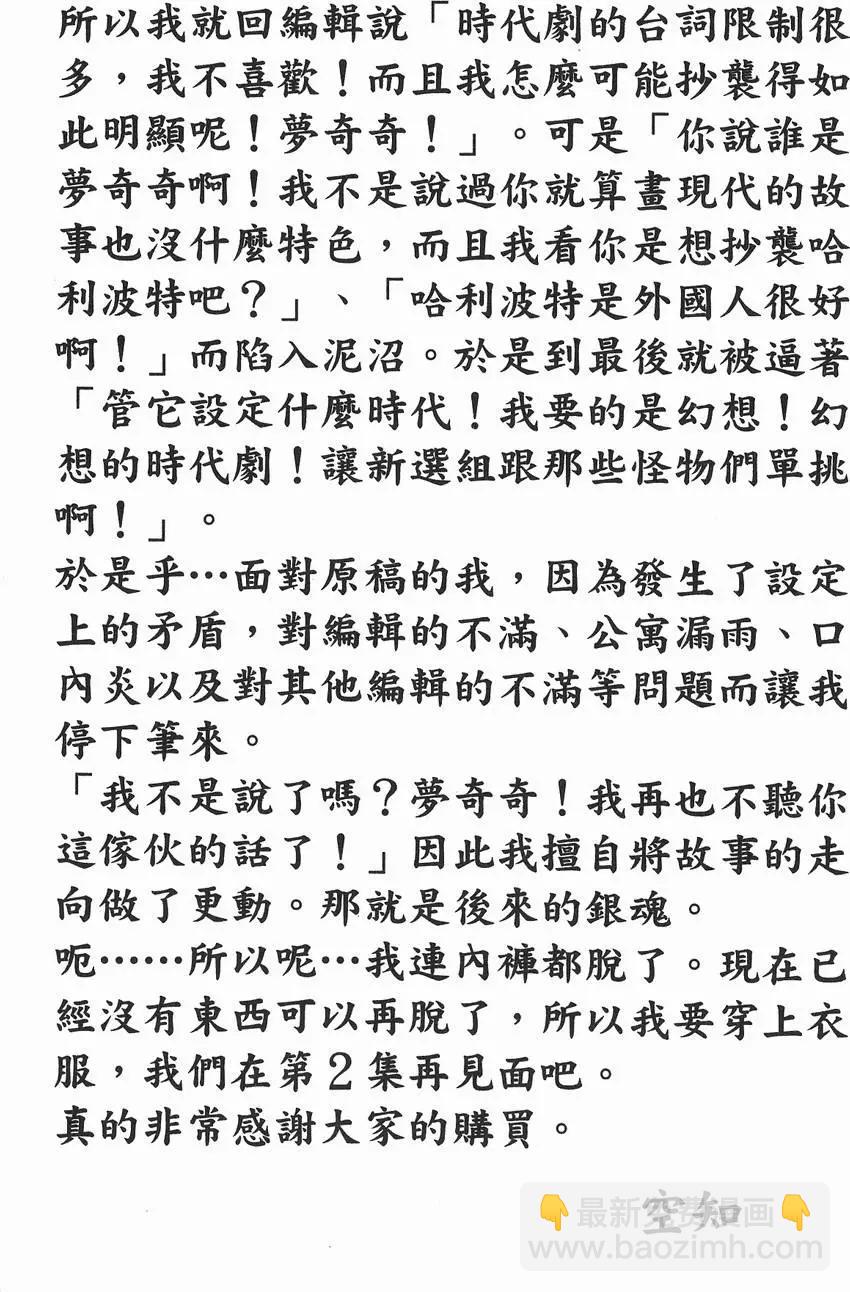 所以我就回編輯說「時代劇的台詞限制很
多，我不喜歡！而且我怎麼可能抄襲得如
此明顯呢！夢奇奇！」。可是「你說誰是
夢奇奇啊！我不是說過你就算畫現代的故
事也沒什麼特色，而且我看你是想抄襲哈
利波特吧？」、「哈利波特是外國人很好
啊！」而陷入泥沼。於是到最後就被逼著
「管它設定什麼時代！我要的是幻想！幻
想的時代劇！讓新選組跟那些怪物們單挑
啊！」。
於是乎…面對原稿的我，因為發生了設定
上的矛盾，對編輯的不滿、公寓漏雨、口
內炎以及對其他編輯的不滿等問題而讓我
停下筆來。
「我不是說了嗎？夢奇奇！我再也不聽你
這傢伙的話了！」因此我擅自將故事的走
向做了更動。那就是後來的銀魂。
呃……所以呢…我連內褲都脫了。現在已
經沒有東西可以再脫了，所以我要穿上衣
服，我們在第2集再見面吧。
真的非常感謝大家的購買。
空知
👇最新免費漫画👇
www.baozimh.com